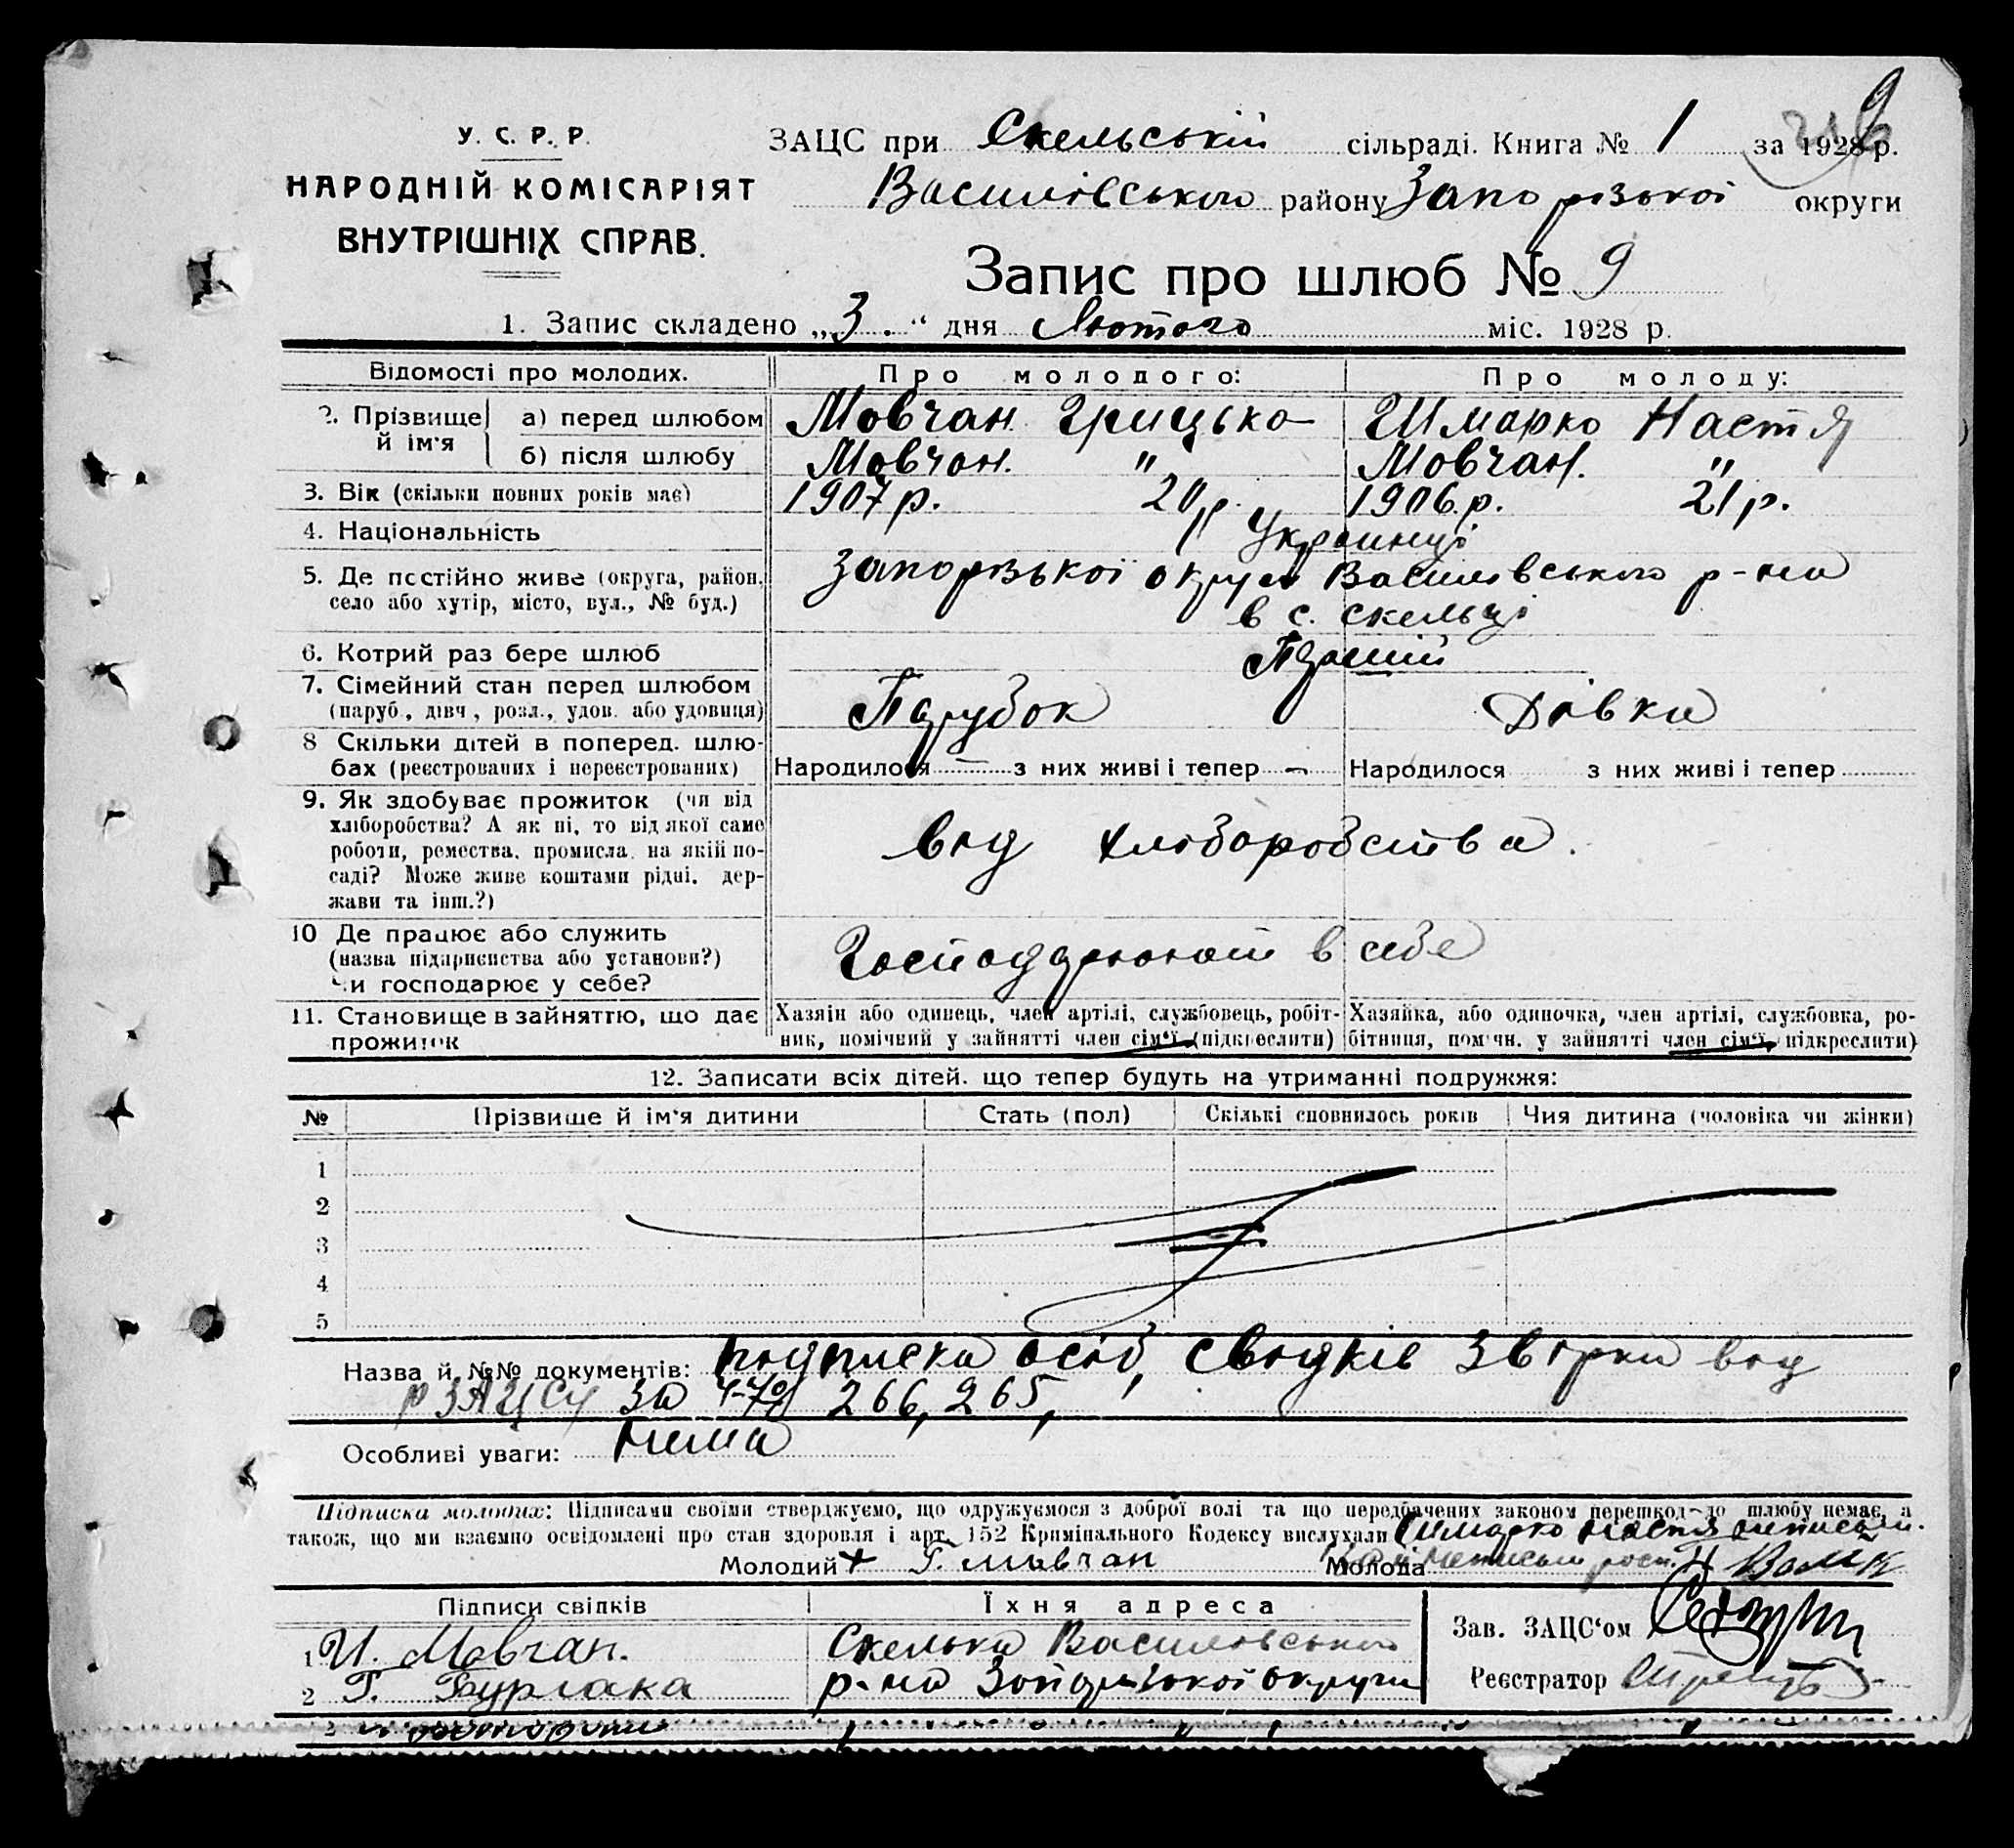 У. С. Р. Р.
НАРОДНІЙ КОМІСАРІЯТ
ВНУТРІШНІХ СПРАВ.
9
ЗАЦС при Скельській сільраді. Книга № 1 за 1928 р.
Василівського району Запорізької округи
Запис про шлюб № 9
1. Запис складено „ 3 . “ дня Лютого міс. 1928 р.
Відомості про молодих. Про молодого: Про молоду:
2. Прізвище й ім'я а) перед шлюбом Мовчан Грицько Шмарко Настя
б) після шлюбу Мовчан. " Мовчан. "
3. Вік (скільки повних років має) 1907 р. 20 р. 1906 р. 21 р.
4. Національність Українці
5. Де постійно живе (округа, район, Запорізької округи Василівського р-на
село або хутір, місто, вул., № буд.) в с. Скельці
6. Котрий раз бере шлюб
7. Сімейний стан перед шлюбом Парубок Дівка
(паруб., дівч., розл., удов. або удовиця)
8 Скільки дітей в поперед. шлю-
бах (реєстрованих і нереєстрованих) Народилося — з них живі і тепер — Народилося з них живі і тепер
9. Як здобуває прожиток (чи від
хліборобства? А як ні, то від якої саме
роботи, ремества, промисла, на якій по- від хліборобства.
саді? Може живе коштами рідні, дер-
жави та інш.?)
10 Де працює або служить
(назва підприємства або установи?) Господарюют в себе
чи господарює у себе?
11. Становище в зайняттю, що дає Хазяїн або одинець, член артілі, службовець, робіт- Хазяйка, або одиночка, член артілі, службовка, ро-
прожиток ник, помічний у зайнятті член сім'ї (підкреслити) бітниця, помічн. у зайнятті член сім'ї, підкреслити)
12. Записати всіх дітей, що тепер будуть на утриманні подружжя:
№ Прізвище й ім'я дитини Стать (пол) Скількі сповнилось років Чия дитина (чоловіка чи жінки)
1
2
3
4
5
Назва й №№ документів: підписка осіб, свідків звірки від
РЗАЦСу за 266, 265,
Особливі уваги: Нима
Підписка молодих: Підписами своїми стверджуємо, що одружуємося з доброї волі та що передбачених законом перешкод до шлюбу немає, а
також, що ми взаємно освідомлені про стан здоровля і арт. 152 Кримінального Кодексу вислухали Шмарко Настя
Молодий + Г. Мовчан Молода
Підписи свідків Їхня адреса
Зав. ЗАЦС'ом
1 И. Мовчан. Скелька Василівського
Реєстратор
2 Г. Бурлака р-на Запорізької округи